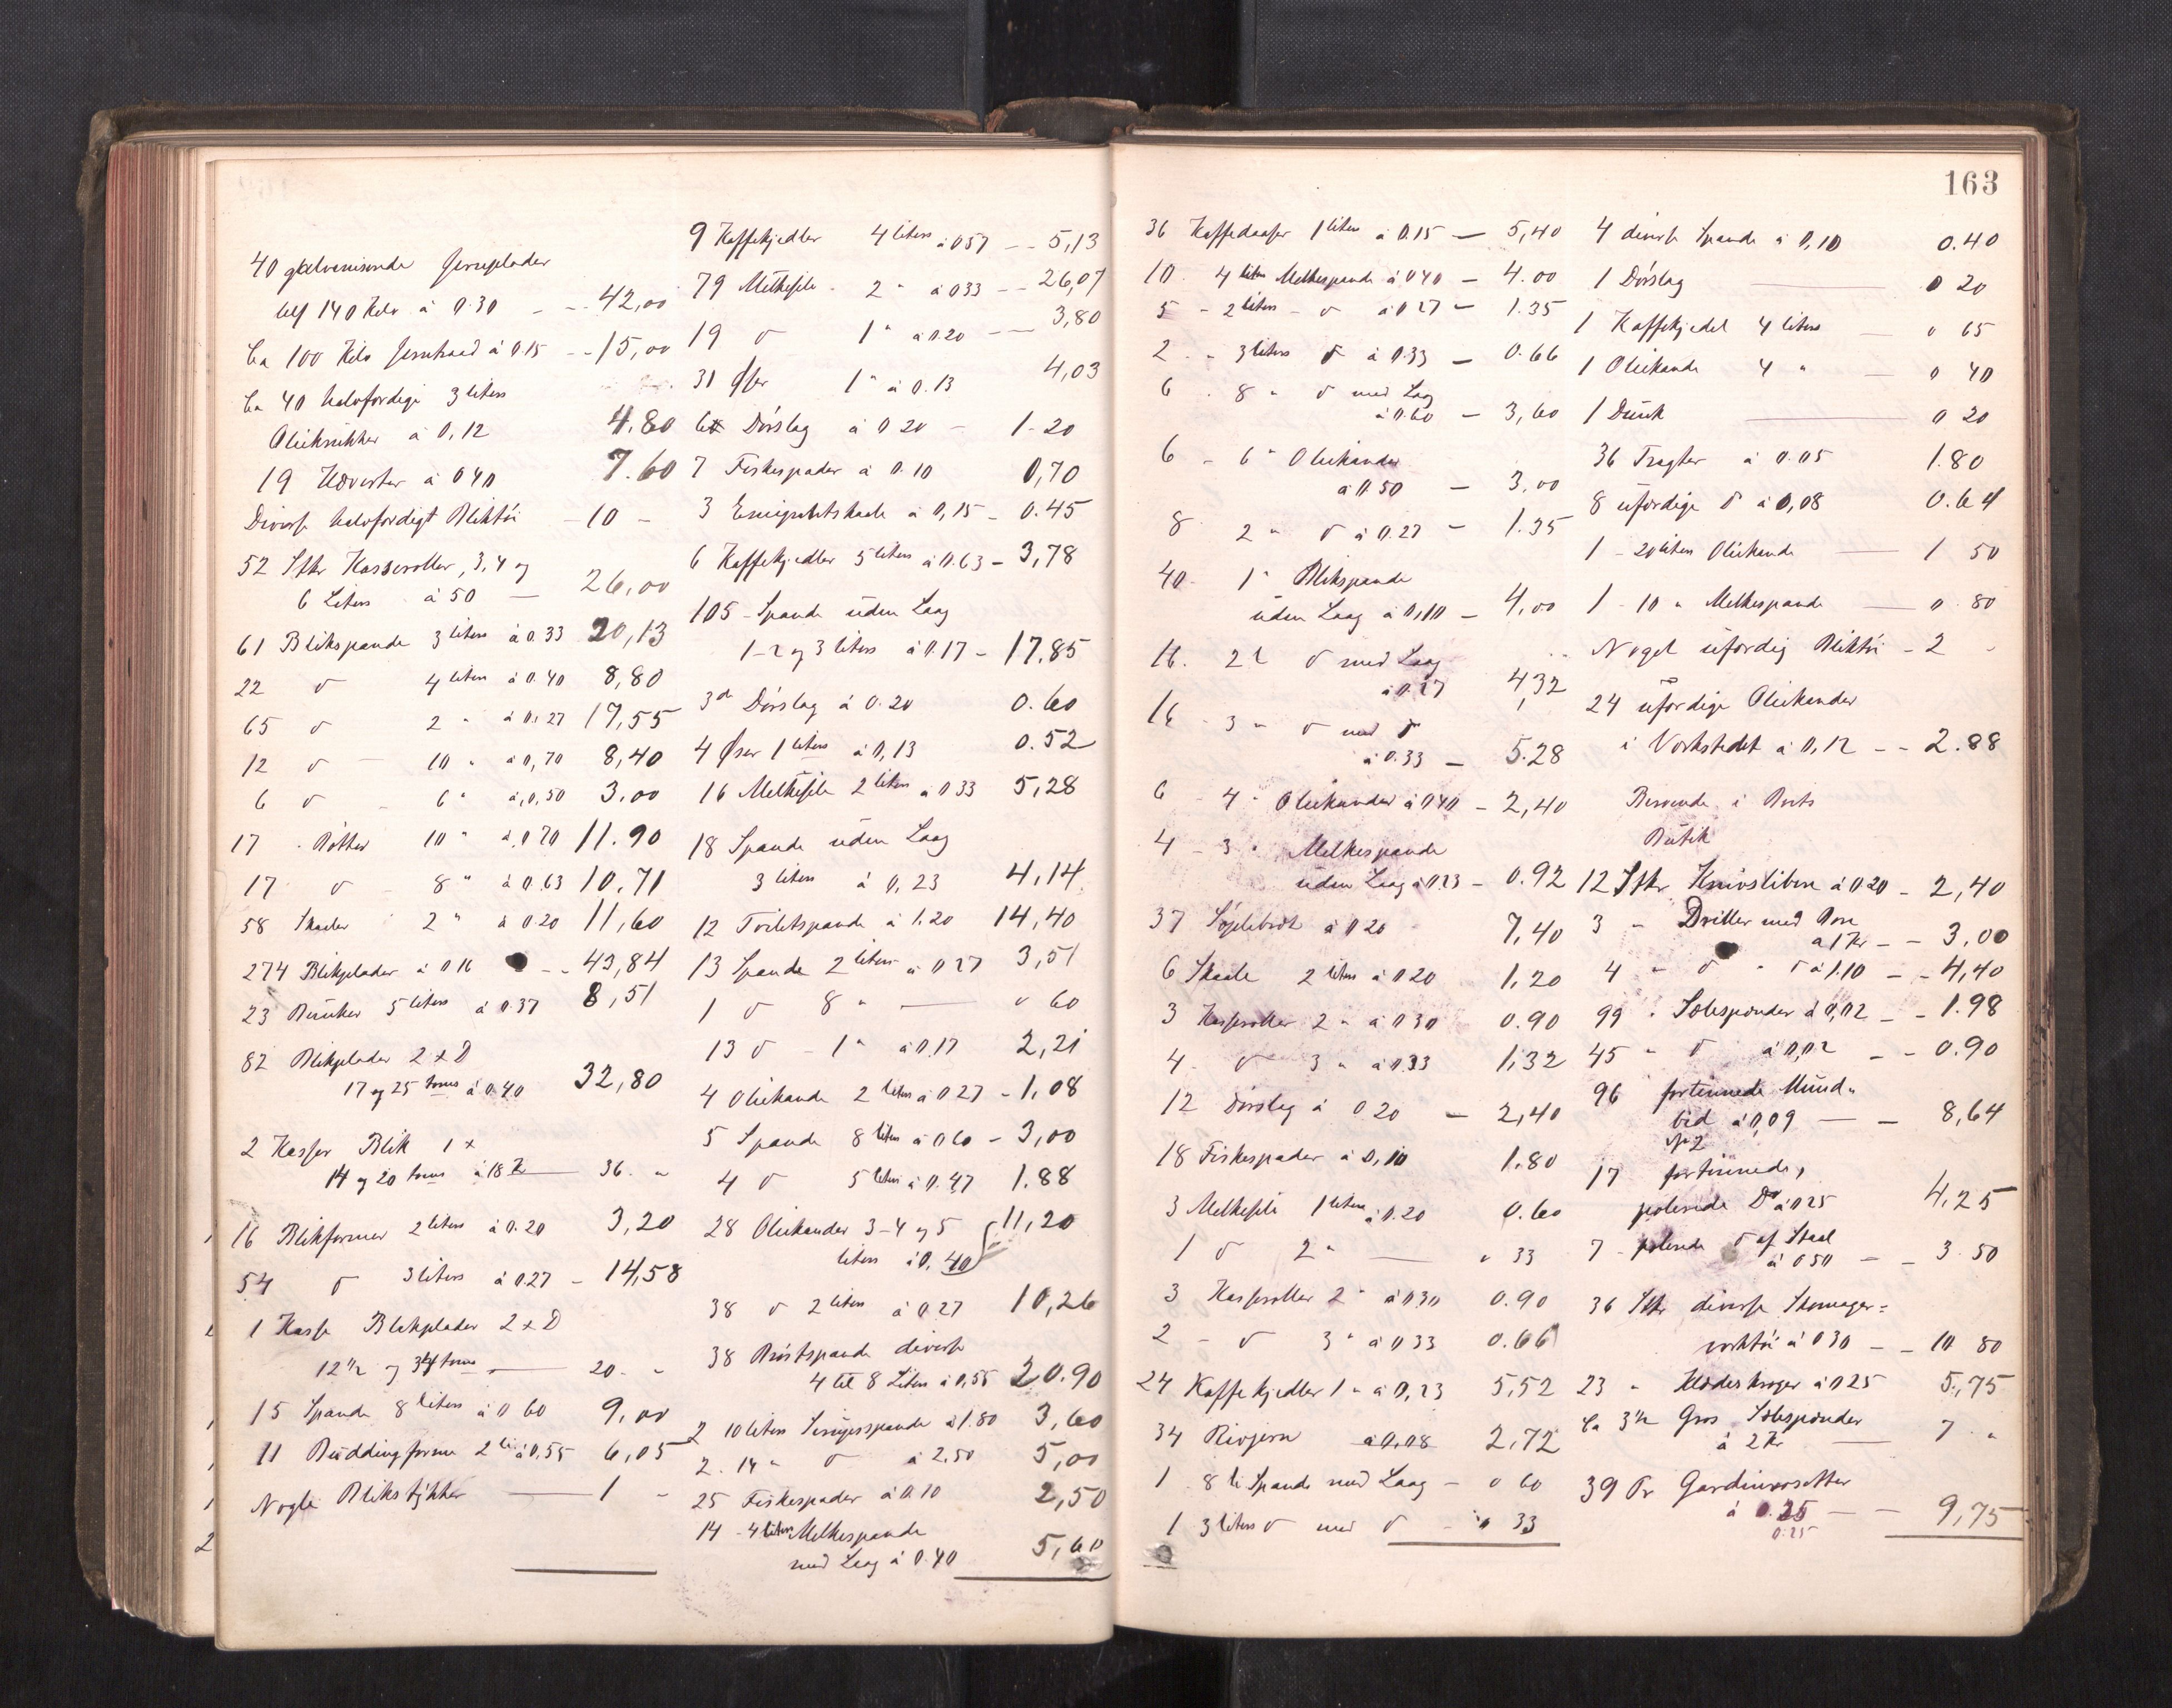 40 galvaniserede Jernplader
140 Kilo à 0.30 - - 42,00
Ca 100 Kilo Jerntraad à 0.15 - - 15,00
Ca 40 halvfærdige 3 liters
Oliekrukker à 0,12 4.80
19 à 0 40 7.60
Diverse halvfærdigt Bliktøi - 10 -
52 Stkr Kasseroller, 3, 4 og
6 Liters à 50 — 26,00
61 Blikspande 3 liters à 0.33 20,13
22 d 4 liters à 0.40 8,80
65 d 2 " à 0.27 17,55
12 d - 10 " à 0,70 8,40
6 d - 6 " à 0,50 3.00
17 - Bøtter 10 " à 0 70 11.90
17 d - 8 " à 0.63 10.71
58 Skaaler 2 " à 0 20 11,60
274 Blikplader à 0.16 - - 43,84
23 Dunker 5 liters à 0.37 8,51
82 Blikplader 2 x D
17 og 25 toms à 0.40 32,80
2 Kasser Blik 1 x
14 og 20 toms à 18 Kr — 36. "
16 Blikformer 2 liters à 0.20 3,20
54 d 3 liters à 0.27 - 14,58
1 Kasse Blikplader 2 x D
12 1/2 og toms — 20. -
15 Spande 8 liters à 0 60 9,00
11 Buddingforme 2 li à 0,55 6,05
Nogle Blikstykker — 1 -
9 Kaffekjedler 4 liters à 0 57 - - 5,13
79 Melkesile - 2 " à 0 33 - - 26,07
19 d 1 " à 0.20 - — 3,80
31 Øser 1 " à 0.13 4,03
6 Dørslag à 0 20 - 1-20
7 Fiskespader à 0.10 0,70
3 Emigrantskaale à 0,15 - 0.45
6 Kaffekjedler 5 liters à 0.63 - 3,78
105 - Spande uden Laag
1-2 og 3 liters à 0.17 - 17.85
3 Dørslag à 0.20 0.60
4 Øser 1 liters à 0,13 0.52
16 Melkesile 2 liters à 0 33 5,28
18 Spande uden Laag
3 liters à 0,23 4,14
12 Toiletspande à 1.20 14,40
13 Spande 2 liters à 0 27 3,51
1 d 8 " — 0 60
13 d - 1 " à 0.17 2,21
4 Oliekande 2 liters à 0 27 - 1,08
5 Spande 8 liters à 0 60 - 3,00
4 d 5 liters à 0.47 1.88
28 Oliekander 3-4 og 5 11,20
liters à 0,40
38 d 2 liters à 0.27 10,26
38 diverse
4 til 8 Liters à 0,55 20.90
2 10 liters à 1.80 3,60
2. 14 " d à 2,50 5,00
25 Fiskespader à 0.10 2,50
14 - 4 liters Melkespande
med Laag à 0.40 5,60
163
36 Kaffedaaser 1 liter à 0.15 — 5,40
10. 4 liters Melkespande à 0 40 — 4.00
5 - 2 liters - d à 0 27 — 1.35
2 - " 3 liters d à 0.33 — 0.66
6 - 8 " d med Lag
à 0.60 — 3,60
6 - 6 " Oliekander
à 0.50 — 3,00
8 2 " d à 0.27 - 1.35
40- 1 " Blikspande
uden Laag à 0,10 — 4,00
16. 2 l d med Laag
à 0.27 4,32
16 - 3 " d med d
à 0.33 — 5.28
6 - 4 " Oliekander à 0 40 - 2,40
4 - 3 " Melkespande
uden Laag à 0.23 - 0.92
37 à 0 20 7,40
6 Skaale 2 liters à 0 20 1,20
3 Kasseroller 2 " à 0 30 0.90
4 - d 3 " à 0.33 1,32
12 Dørslag à 0 20 — 2,40
18 Fiskespader à 0,10 1.80
3 Melkesile 1 liters à 0.20 0.60
1 d 2 " — " 33
3 Kasseroller 2 " à 0 30 0.90
2 - d 3 " à 0 33 0.66
24 Kaffekjedler 1 " à 0,23 5,52
34 Rivjern à 0,08 2,72
1 - 8 li Spande med Laag - 0 60
1 3 liters d med d - " 33
4 diverse Spande à 0,10 0.40
1 Dørslag — 0 20
1 Kaffekjedel 4 liters — 0 65
1 Oliekande 4 " — 0 40
1 Dunk — 0 20
36 Tragter à 0.05 1.80
8 ufærdige d à 0,08 0.64
1 - 20 liters Oliekande — 1 50
1 - 10 " Melkespande — 0 80
Noget ufærdig Bliktøi - 2 -
24 ufærdige Oliekander
i Værkstedet à 0,12 - - 2.88
Beroende i
Butik
12 Stkr Knivslibere à 0 20 - 2,40
3 " Driller med Bore
à 1 Kr - - 3,00
4 " d " d à 1.10 - - 4,40
99 " Solespænder à 0,02 - - 1.98
45 " d à 0,02 - - 0.90
96 fortinnede Mund-
bid à 0,09 — — 8,64
17 fortinnede,
polerede Do à 0 25 4,25
7 - polerede d af Staal
à 0 50 - - 3.50
36 Stkr diverse Skomager=
værktøi à 0 30 - - 10 80
23 " à 0 25 5,75
Ca 3 1/2 Gros Solespænder
à 2 Kr — 7 "
39 Pr Gardinrosetter
à 0.25 — — 9,75
0.25